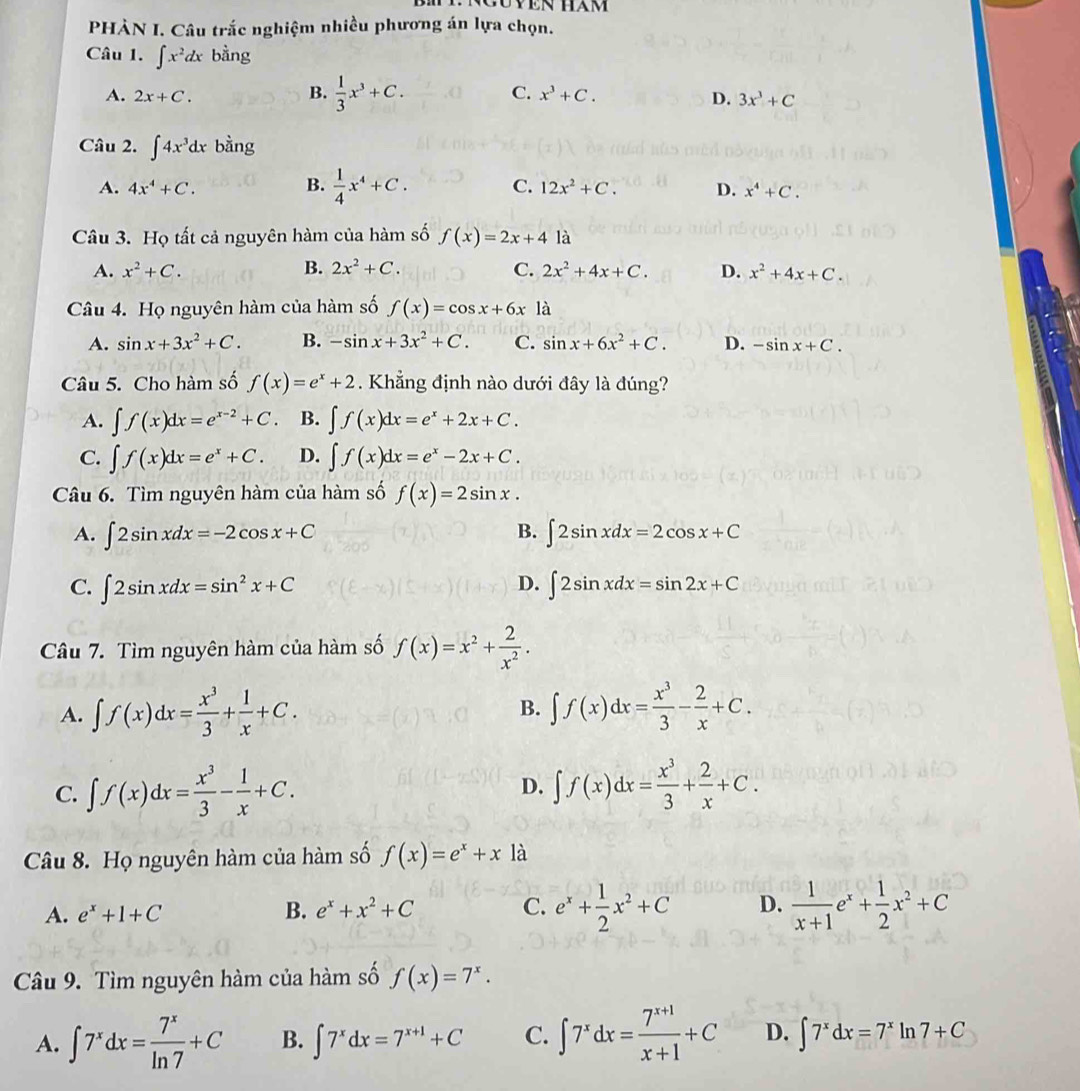 NGUYÊN HÀM
PHẦN I. Câu trắc nghiệm nhiều phương án lựa chọn.
Câu 1. ∫x²dx bằng
A. 2x+C. B. 1/3 x³+C. C. x³+C. D. 3x³+C
Câu 2. ∫4x³dx bằng
A. 4x⁴+C. B. 1/4 x⁴+C. C. 12x²+C. D. x⁴+C.
Câu 3. Họ tất cả nguyên hàm của hàm số f(x)=2x+4 là
A. x²+C. B. 2x²+C. C. 2x²+4x+C. D. x²+4x+C.
Câu 4. Họ nguyên hàm của hàm số f(x)=cosx+6x là
A. sinx+3x²+C. B. -sinx+3x²+C. C. sinx+6x²+C. D. -sinx+C.
Câu 5. Cho hàm số f(x)=eˣ+2. Khẳng định nào dưới đây là đúng?
A. ∫f(x)dx=eˣ⁻²+C. B. ∫f(x)dx=eˣ+2x+C.
C. ∫f(x)dx=eˣ+C. D. ∫f(x)dx=eˣ-2x+C.
Câu 6. Tìm nguyên hàm của hàm số f(x)=2sinx.
A. ∫2sinxdx=-2cosx+C B. ∫2sinxdx=2cosx+C
C. ∫2sinxdx=sin²x+C D. ∫2sinxdx=sin2x+C
Câu 7. Tìm nguyên hàm của hàm số f(x)=x²+2/x².
A. ∫f(x)dx=x³/3+1/x+C. B. ∫f(x)dx=x³/3-2/x+C.
C. ∫f(x)dx=x³/3-1/x+C. D. ∫f(x)dx=x³/3+2/x+C.
Câu 8. Họ nguyên hàm của hàm số f(x)=eˣ+x là
A. eˣ+1+C B. eˣ+x²+C C. eˣ+1/2 x²+C D. 1/(x+1) eˣ+1/2 x²+C
Câu 9. Tìm nguyên hàm của hàm số f(x)=7ˣ.
A. ∫7ˣdx=7ˣ/ln7+C B. ∫7ˣdx=7ˣ⁺¹+C C. ∫7ˣdx=7ˣ⁺¹/(x+1)+C D. ∫7ˣdx=7ˣln7+C